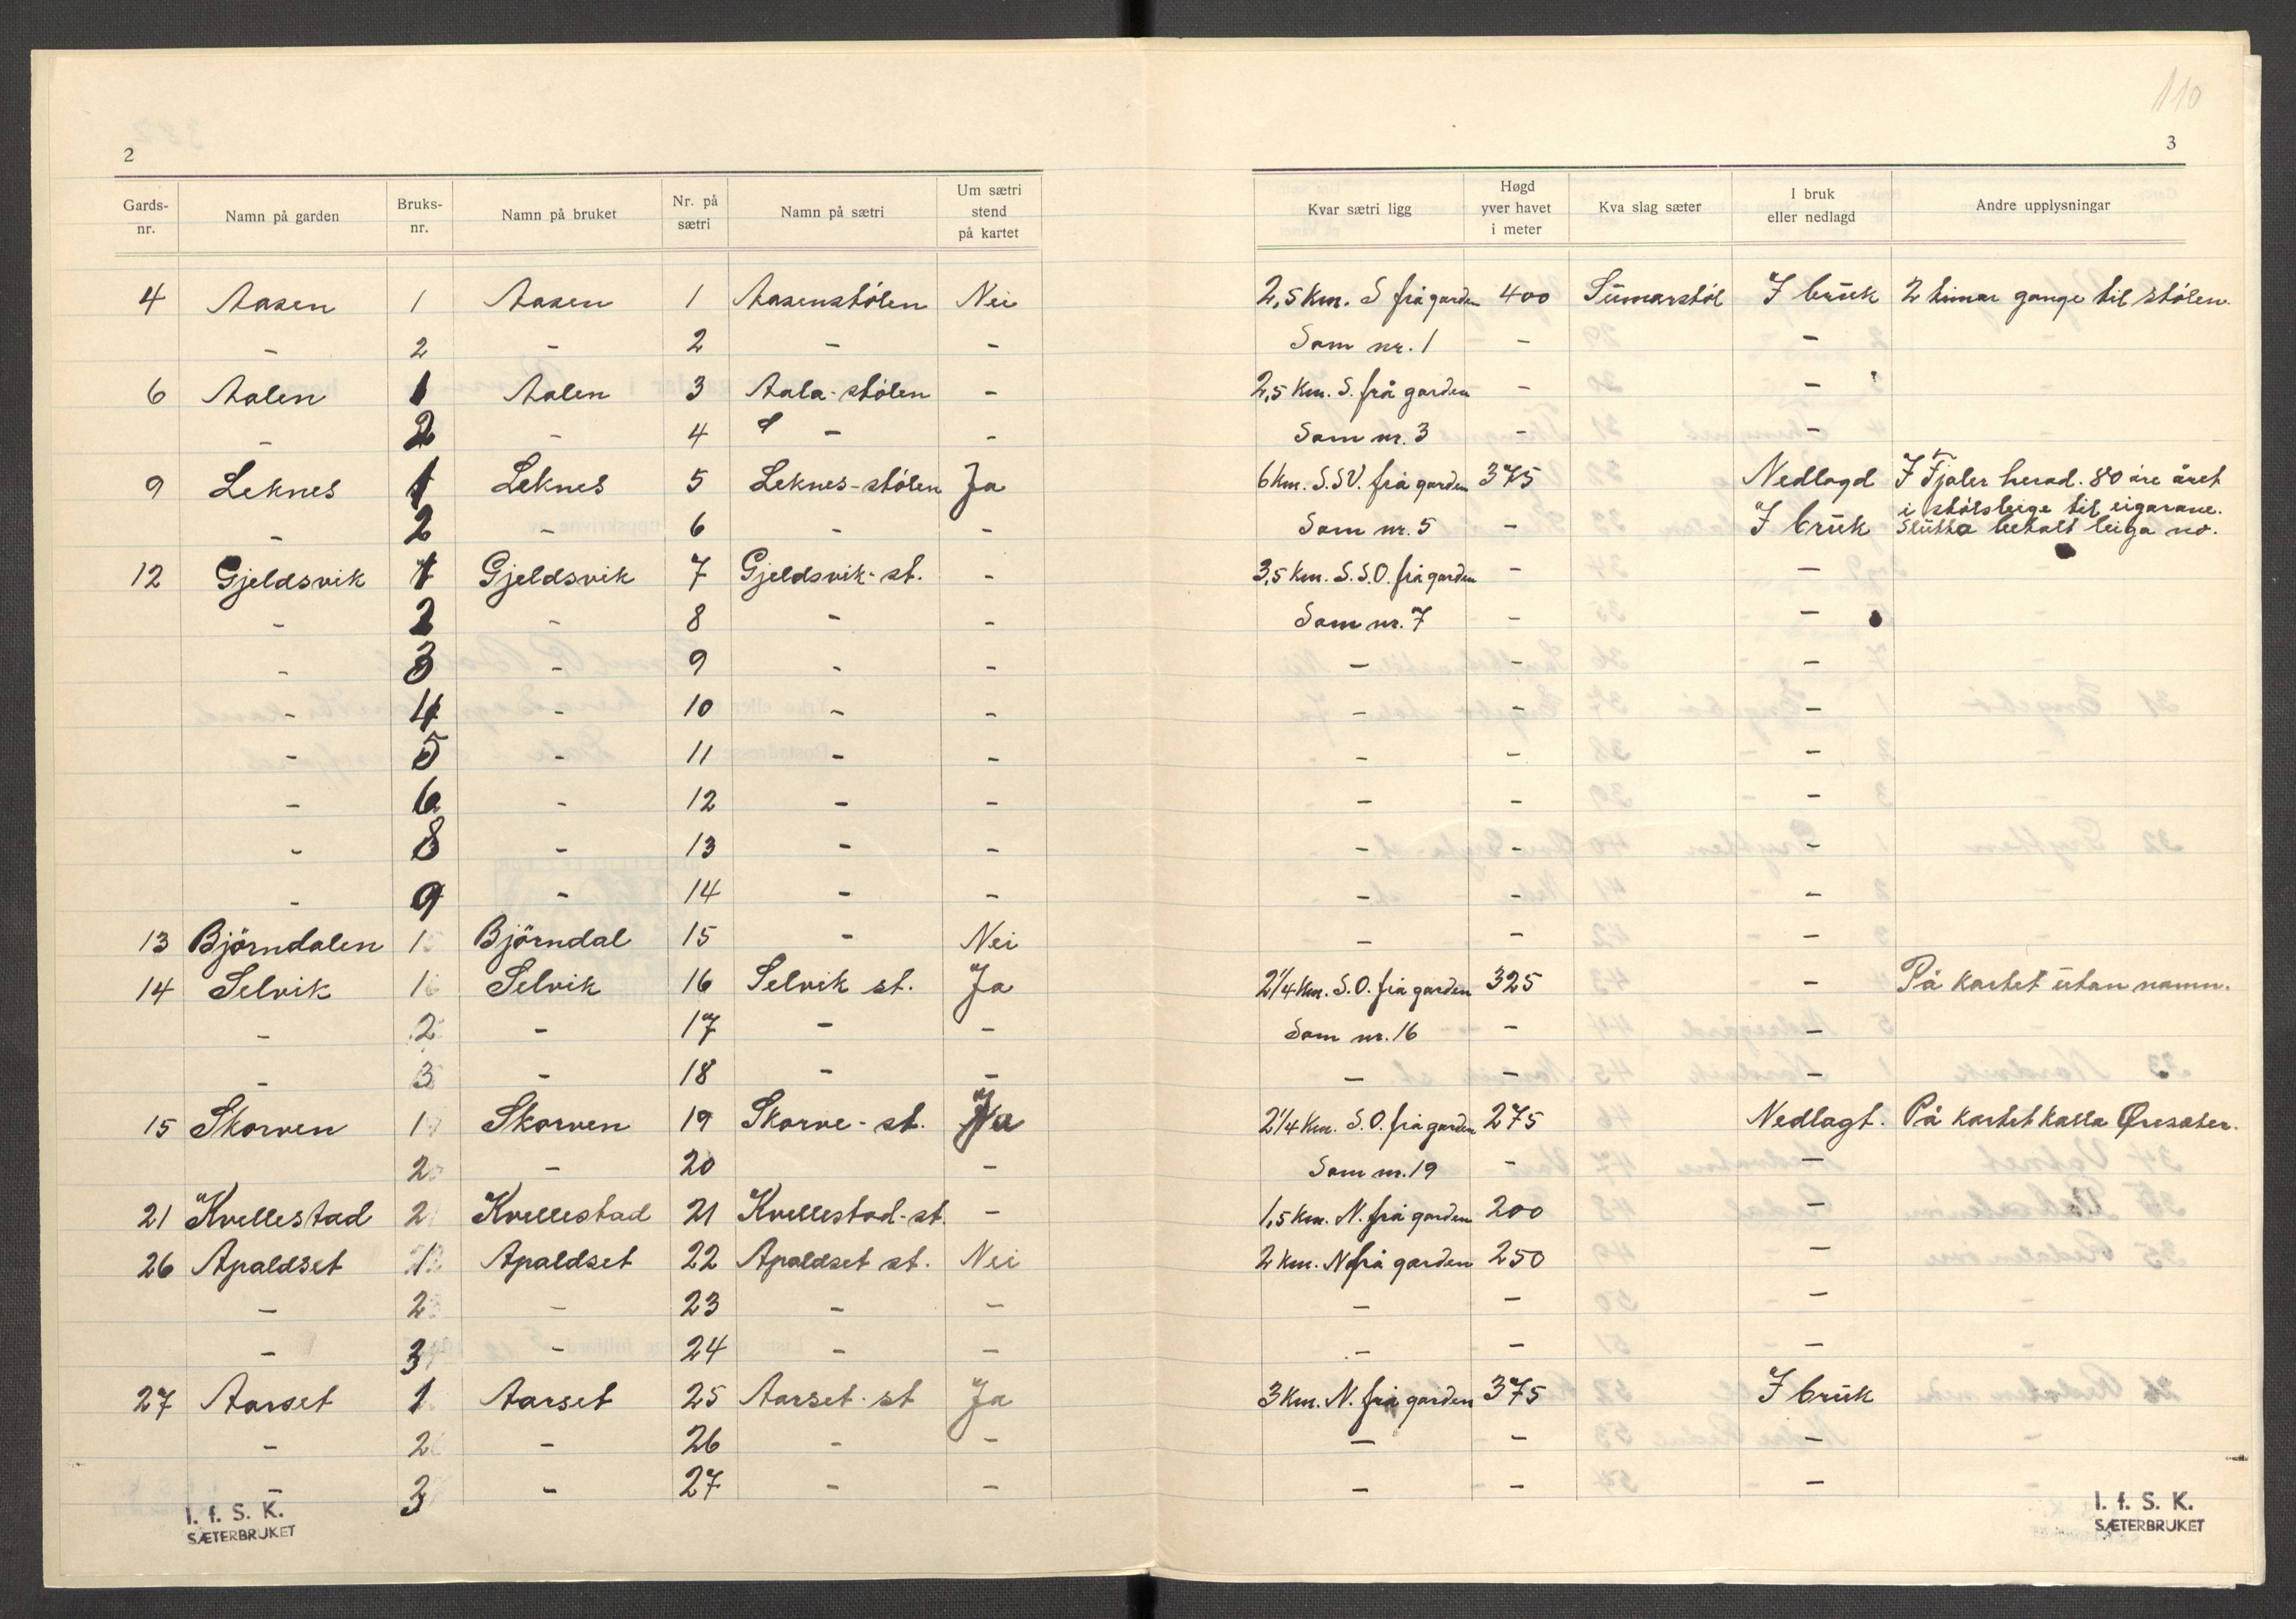 110
2
3
Gards-nr. Namn på garden Bruks-nr. Namn på bruket Nr. på sætri Namn på sætri Um sætri stend på kartet Kvar sætri ligg Høgd yver havet i meter Kva slag sæter I bruk eller nedlagd Andre upplysningar
4 Aasen 1 Aasen 1 Aasenstølen Nei 2,5 Km. S frå garden 400 Sumarstøl I bruk 2 timar gange til stølen.
- 2 - 2 - - Som nr. 1 - -
6 Aalen 1 Aalen 3 Aala-stølen - 2,5 Km. S. frå garden - -
- 2 - 4 - - Som nr. 3 - -
9 Leknes 1 Leknes 5 Leknes-stølen Ja 6 Km. S.SV. frå garden 375 Nedlagd I Fjaler herad. 80 åre året
i stølsleige til eigarane.
- 2 - 6 - - Som nr. 5 - I bruk Slutta betalt leiga no.
12 Gjeldsvik 1 Gjeldsvik 7 Gjeldsvik-st. - 3,5 Km. S.S.O. frå garden - -
- 2 - 8 - - Som nr. 7 - -
- 3 - 9 - - - - -
- 4 - 10 - - - - -
- 5 - 11 - - - - -
- 6 - 12 - - - - -
- 8 - 13 - - - - -
- 9 - 14 - - - - -
13 Björndalen 1 Björndal 15 - Nei - - -
14 Selvik 1 Selvik 16 Selvik st. Ja 2 1/4 Km. S.O. frå garden 325 - På kartet utan namn.
- 2 - 17 - - Som nr. 16 - -
- 3 - 18 - - - - -
15 Skorven 1 Skorven 19 Skorve-st. Ja 2 1/4 Km. S.O. frå garden 275 Nedlagt. På kartet kalla Øresæter.
2 - 20 - Som nr. 19 - -
21 Kvellestad 2 Kvellestad 21 Kvellestad-st. - 1,5 Km. N. frå garden 200 -
26 Apaldset 1 Apaldset 22 Apaldset st. Nei 2 Km. N frå garden 250 -
- 2 - 23 - - - - -
- 3 - 24 - - - - -
27 Aarset 1 Aarset 25 Aarset-st Ja 3 Km. N. frå garden 375 I bruk
- 2 - 26 - - - - -
- 3 - 27 - - - - -
I. f. S. K.
SÆTERBRUKET
I. f. S. K.
SÆTERBRUKET